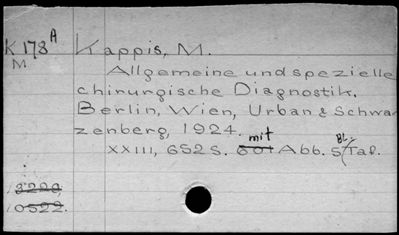 K 178 A
M.
Kappis, M.
Allgemeine und spezielle
chirurgische Diagnostik.
Berlin, Wien, Urban & Schwar
zenberg, 1924.
XXIII, 652 S. mit 601 Abb. 5 Taf.
10522.